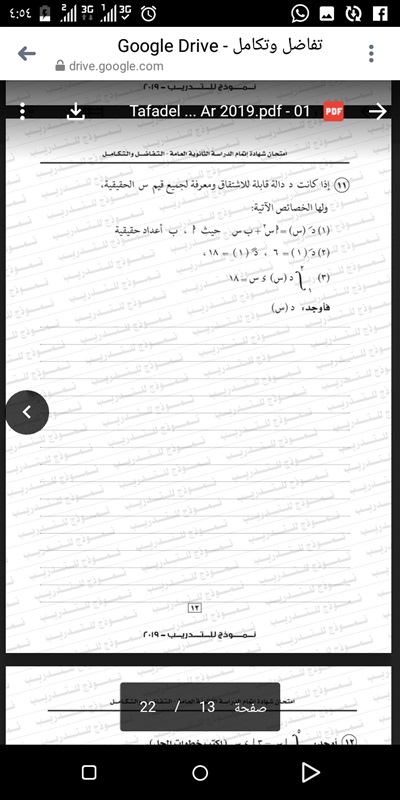 ٤:٥٤
2 3G 1 3G
تفاضل وتكامل - Google Drive
drive.google.com
نموذج للتدريب - ٢٠١٩
Tafadel ... Ar 2019.pdf - 01 PDF
امتحان شهادة إتمام الدراسة الثانوية العامة - التفاضل والتكامل
١١ إذا كانت د دالة قابلة للاشتقاق ومعرفة لجميع قيم س الحقيقية،
ولها الخصائص الآتية:
(١) دَ (س) = أ س٢ + ب س حيث أ ، ب أعداد حقيقية
(٢) دَ (١) = ٦ ، دً (١) = ١٨ ،
(٣) ∫١٢ د (س) ء س = ١٨
فأوجد: د (س)
١٢
نموذج للتدريب - ٢٠١٩
امتحان شهادة إتمام الدراسة الثانوية العامة - التفاضل والتكامل
صفحة 13 / 22
١٢ أوجد: | س - ٣ | ء س (اكتب خطوات الحل)
نموذج للتدريب